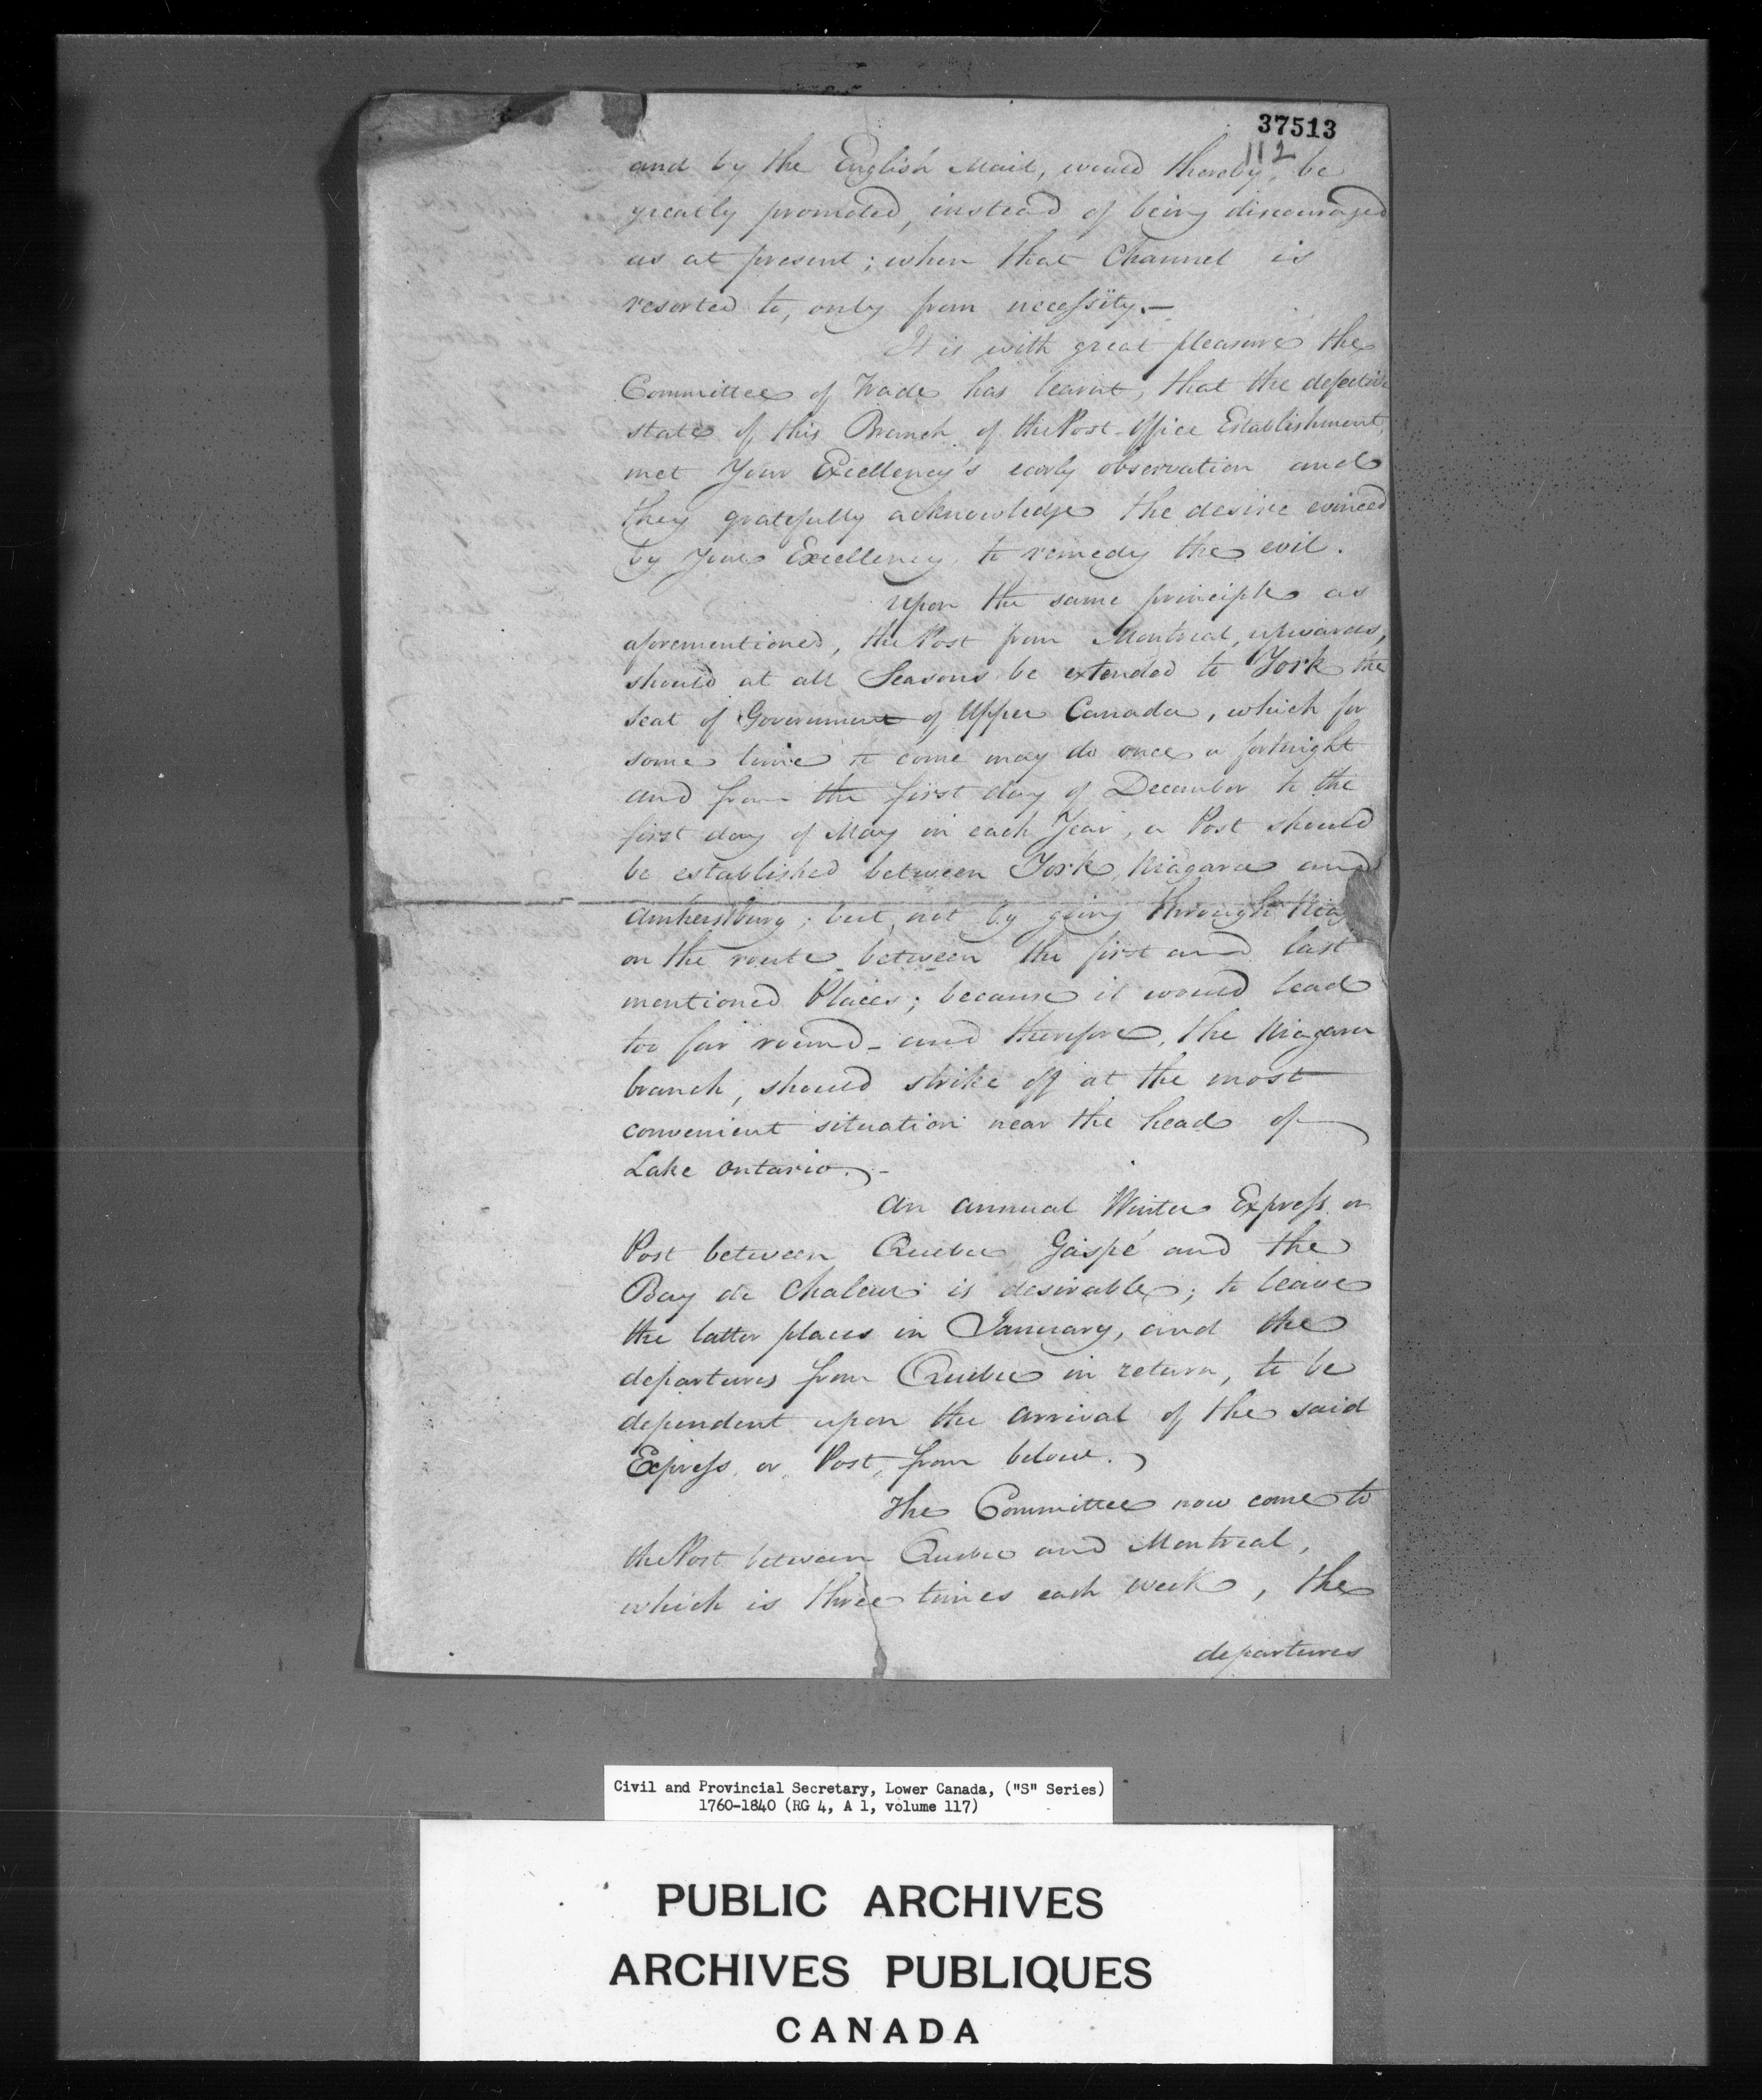 37513
112
and by the English Mail, would thereby, be
greatly promoted, instead of being discouraged
as at present; when that Channel is
resorted to, only from necessity.—
It is with great pleasure the
Committee of Trade has learnt, that the defective
state of this Branch of the Post-Office Establishment,
met Your Excellency's early observation and
they gratefully acknowledge the desire evinced
by your Excellency, to remedy the evil.
Upon the same principle as
aforementioned, the Post from Montreal, upwards,
should at all Seasons be extended to York the
Seat of Government of Upper Canada, which for
some time to come may do once a fortnight
and from the first day of December to the
first day of May in each Year, a Post should
be established between York, Niagara and
Amherstburg; but, not by going through Niag
on the route between the first and last
mentioned Places; because it would lead
too far round - and therefore, the Niagara
branch, should strike off at the most
convenient situation near the head of
Lake Ontario.-
An annual Winter Express or
Post between Quebec Gaspé and the
Bay de Chaleur is desirable; to leave
the latter places in January, and the
departures from Quebec in return, to be
dependent upon the arrival of the said
Express, or Post, from below.
The Committee now come to
the Post between Quebec and Montreal,
which is three times each week, the
departures
Civil and Provincial Secretary, Lower Canada, ("S" Series)
1760-1840 (RG 4, A 1, volume 117)
PUBLIC ARCHIVES
ARCHIVES PUBLIQUES
CANADA